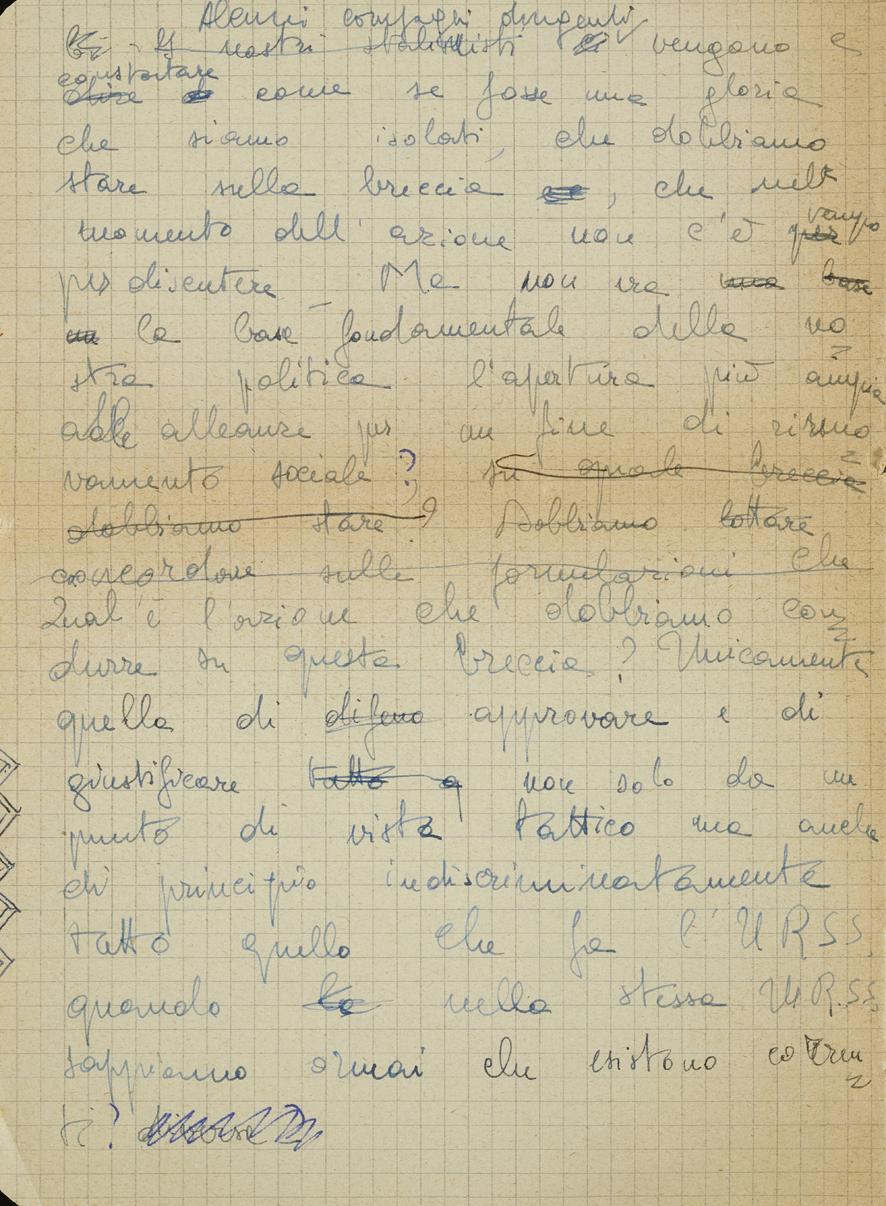 Alcuni compagni dirigenti
nostri stalinisti vengono e
constatare
dire come se fosse una gloria
che siamo isolati, che dobbiamo
stare sulla breccia, che nel
momento dell'azione non c'è tempo
per discutere – Ma non era una base
la base fondamentale della no
stra politica l'apertura più ampia
alle alleanze per un fine di rinno
vamento sociale? su quale breccia
dobbiamo stare? Dobbiamo lottare
concordare sulle formulazioni che
Qual è l'azione che dobbiamo con
durre su questa breccia? Unicamente
quella di approvare e di
giustificare tutto q non solo da un
punto di vista tattico ma anche
di principio indiscriminatamente
tutto quello che fa l'URSS,
quando la nella stessa URSS
sappiamo ormai che esistono corren
ti?